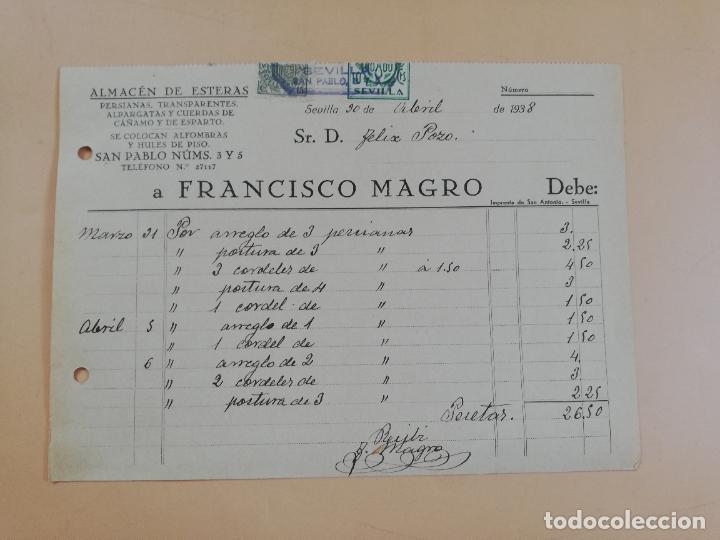 SEVILLA
SAN PABLO,
SEVILLA
ALMACÉN DE ESTERAS
PERSIANAS, TRANSPARENTES,
ALPARGATAS Y CUERDAS DE
CÁÑAMO Y DE ESPARTO.
SE COLOCAN ALFOMBRAS
Y HULES DE PISO.
SAN PABLO NÚMS. 3 Y 5
TELÉFONO N.º 27117
Número
Sevilla 20 de Abril de 1938
Sr. D. Felix Pozo.
a FRANCISCO MAGRO Debe:
Imprenta de San Antonio. - Sevilla
Marzo 21 Por arreglo de 3 persianas 3.
" postura de 3 " 2,25
" 3 cordeles de " á 1.50 4,50
" postura de 4 " 3
" 1 cordel de " 1,50
Abril 5 " arreglo de 1 " 1,50
" 1 cordel de " 1,50
6 " arreglo de 2 " 4.
" 2 cordeles de " 3.
" postura de 3 " 2,25
Pesetas. 26,50
Recibí
F. Magro
todocoleccion.net